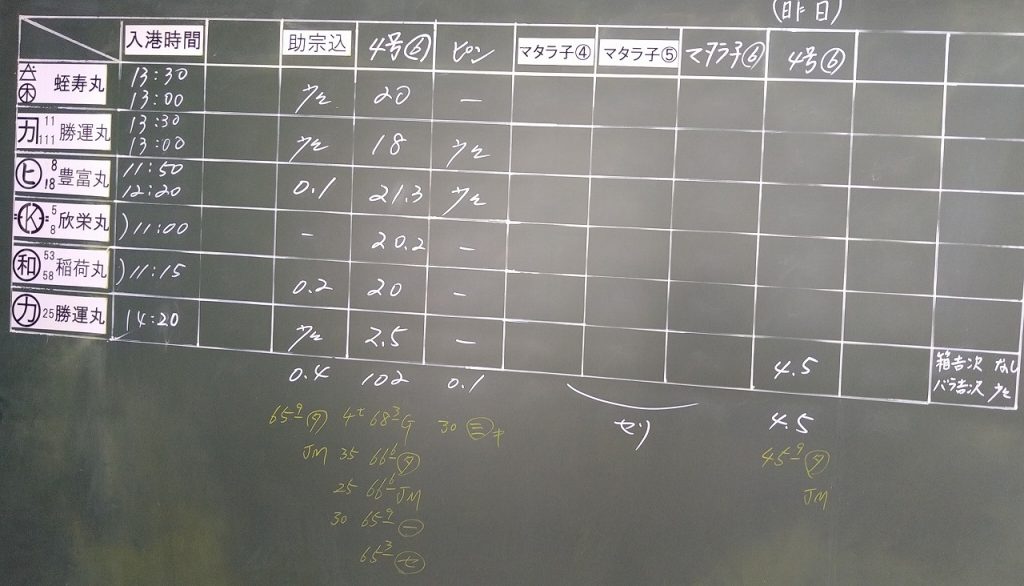 (昨日)
入港時間 助宗込 4号⑥ ピン マタラ子④ マタラ子⑤ マタラ子⑥ 4号⑥
蛭寿丸 13:30 13:00 少々 20 ー
カ 11 111 勝運丸 13:30 13:00 少々 18 少々
ヒ 8 18 豊富丸 11:50 12:20 0.1 21.3 少々
K 5 8 欣栄丸 )11:00 ー 20.2 ー
和 53 58 稲荷丸 )11:15 0.2 20 ー
カ 25 勝運丸 14:20 少々 2.5 ー 4.5 箱吉次 なし
バラ吉次 少々
0.4 102 0.1 セリ 4.5
65 9 タ 4t 68 3 G 30 三 キ 45 9 タ
JM 35 66 6 タ JM
25 66 6 JM
30 65 9 一
65 3 セ